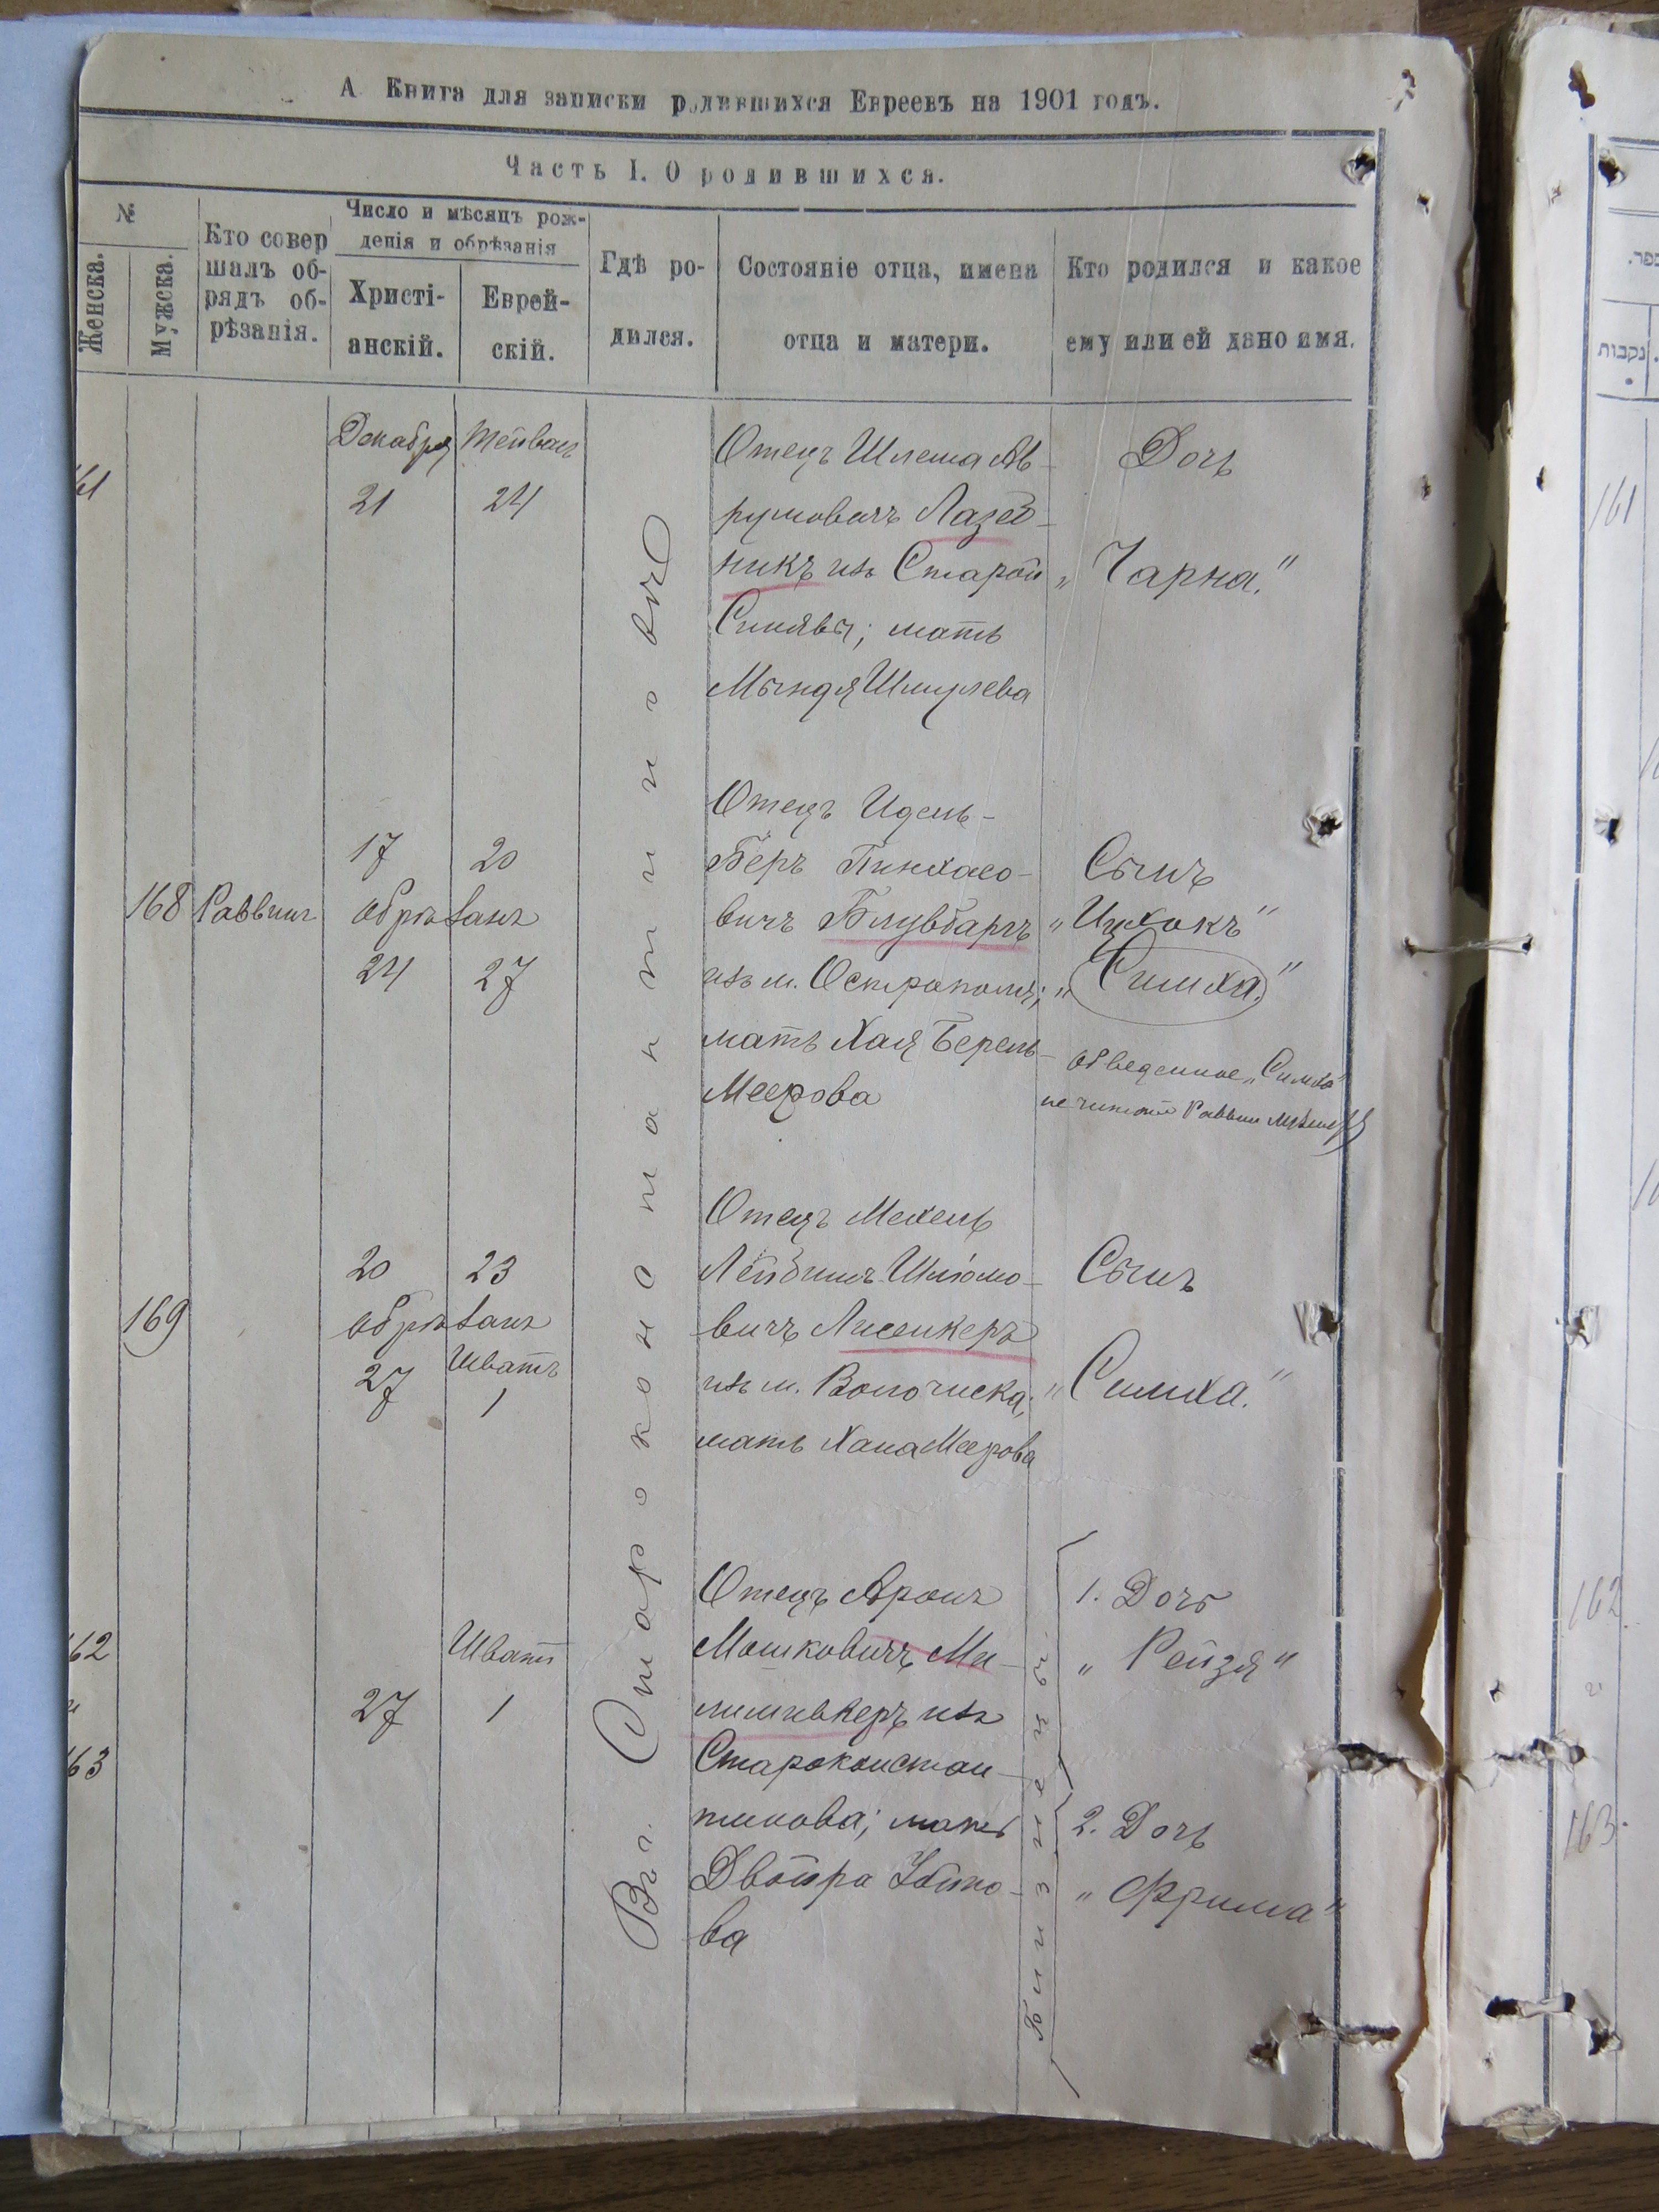 А Книга для записки родившихся Евреевъ на 1901 годъ.
Часть I. О родившихся.
№
Женска.
Мужска.
Кто совер
шалъ об-
рядъ об-
рѣзанія.
Число и мѣсяцъ рож-
денія и обрѣзанія
Христі-
анскій.
Еврей-
скій.
Гдѣ ро-
дился.
Состояніе отца, имена
отца и матери.
Кто родился и какое
ему или ей дано имя.
61
Декабря
21
Тейвасъ
24
Отецъ Шлема Ав-
румовичъ Лазеб-
никъ изъ Старой
Синявы; мать
Мындя Шмулева
Дочь
„Чарна."
168
Раввинъ
17 20
обрѣзанъ
24 27
Отецъ Идель-
Беръ Пинхасо-
вичъ Блувбаргъ
изъ м. Острополя;
мать Хая Берель-
Меерова
Сынъ
„Ицхокъ"
„Симха."
обведенное „Симха"
не читать Раввин
169
20 23
обрѣзанъ
27 Шватъ
1
Отецъ Мехель
Лейбишъ Шлiомо-
вичъ Лисенкеръ
изъ м. Волочиска;
мать Хана Меерова
Сынъ
„Симха."
62
и
63
27
Шватъ
1
Отецъ Аронъ
Мошковичъ Ми-
лиликеръ изъ
Старокостан-
тинова; мать
Двойра
ва
Близнецы
1. Дочь
„Рейзя"
2. Дочь
„Фрима"
Въ г. Староконстантиновѣ
161
162
и
163
נקבות